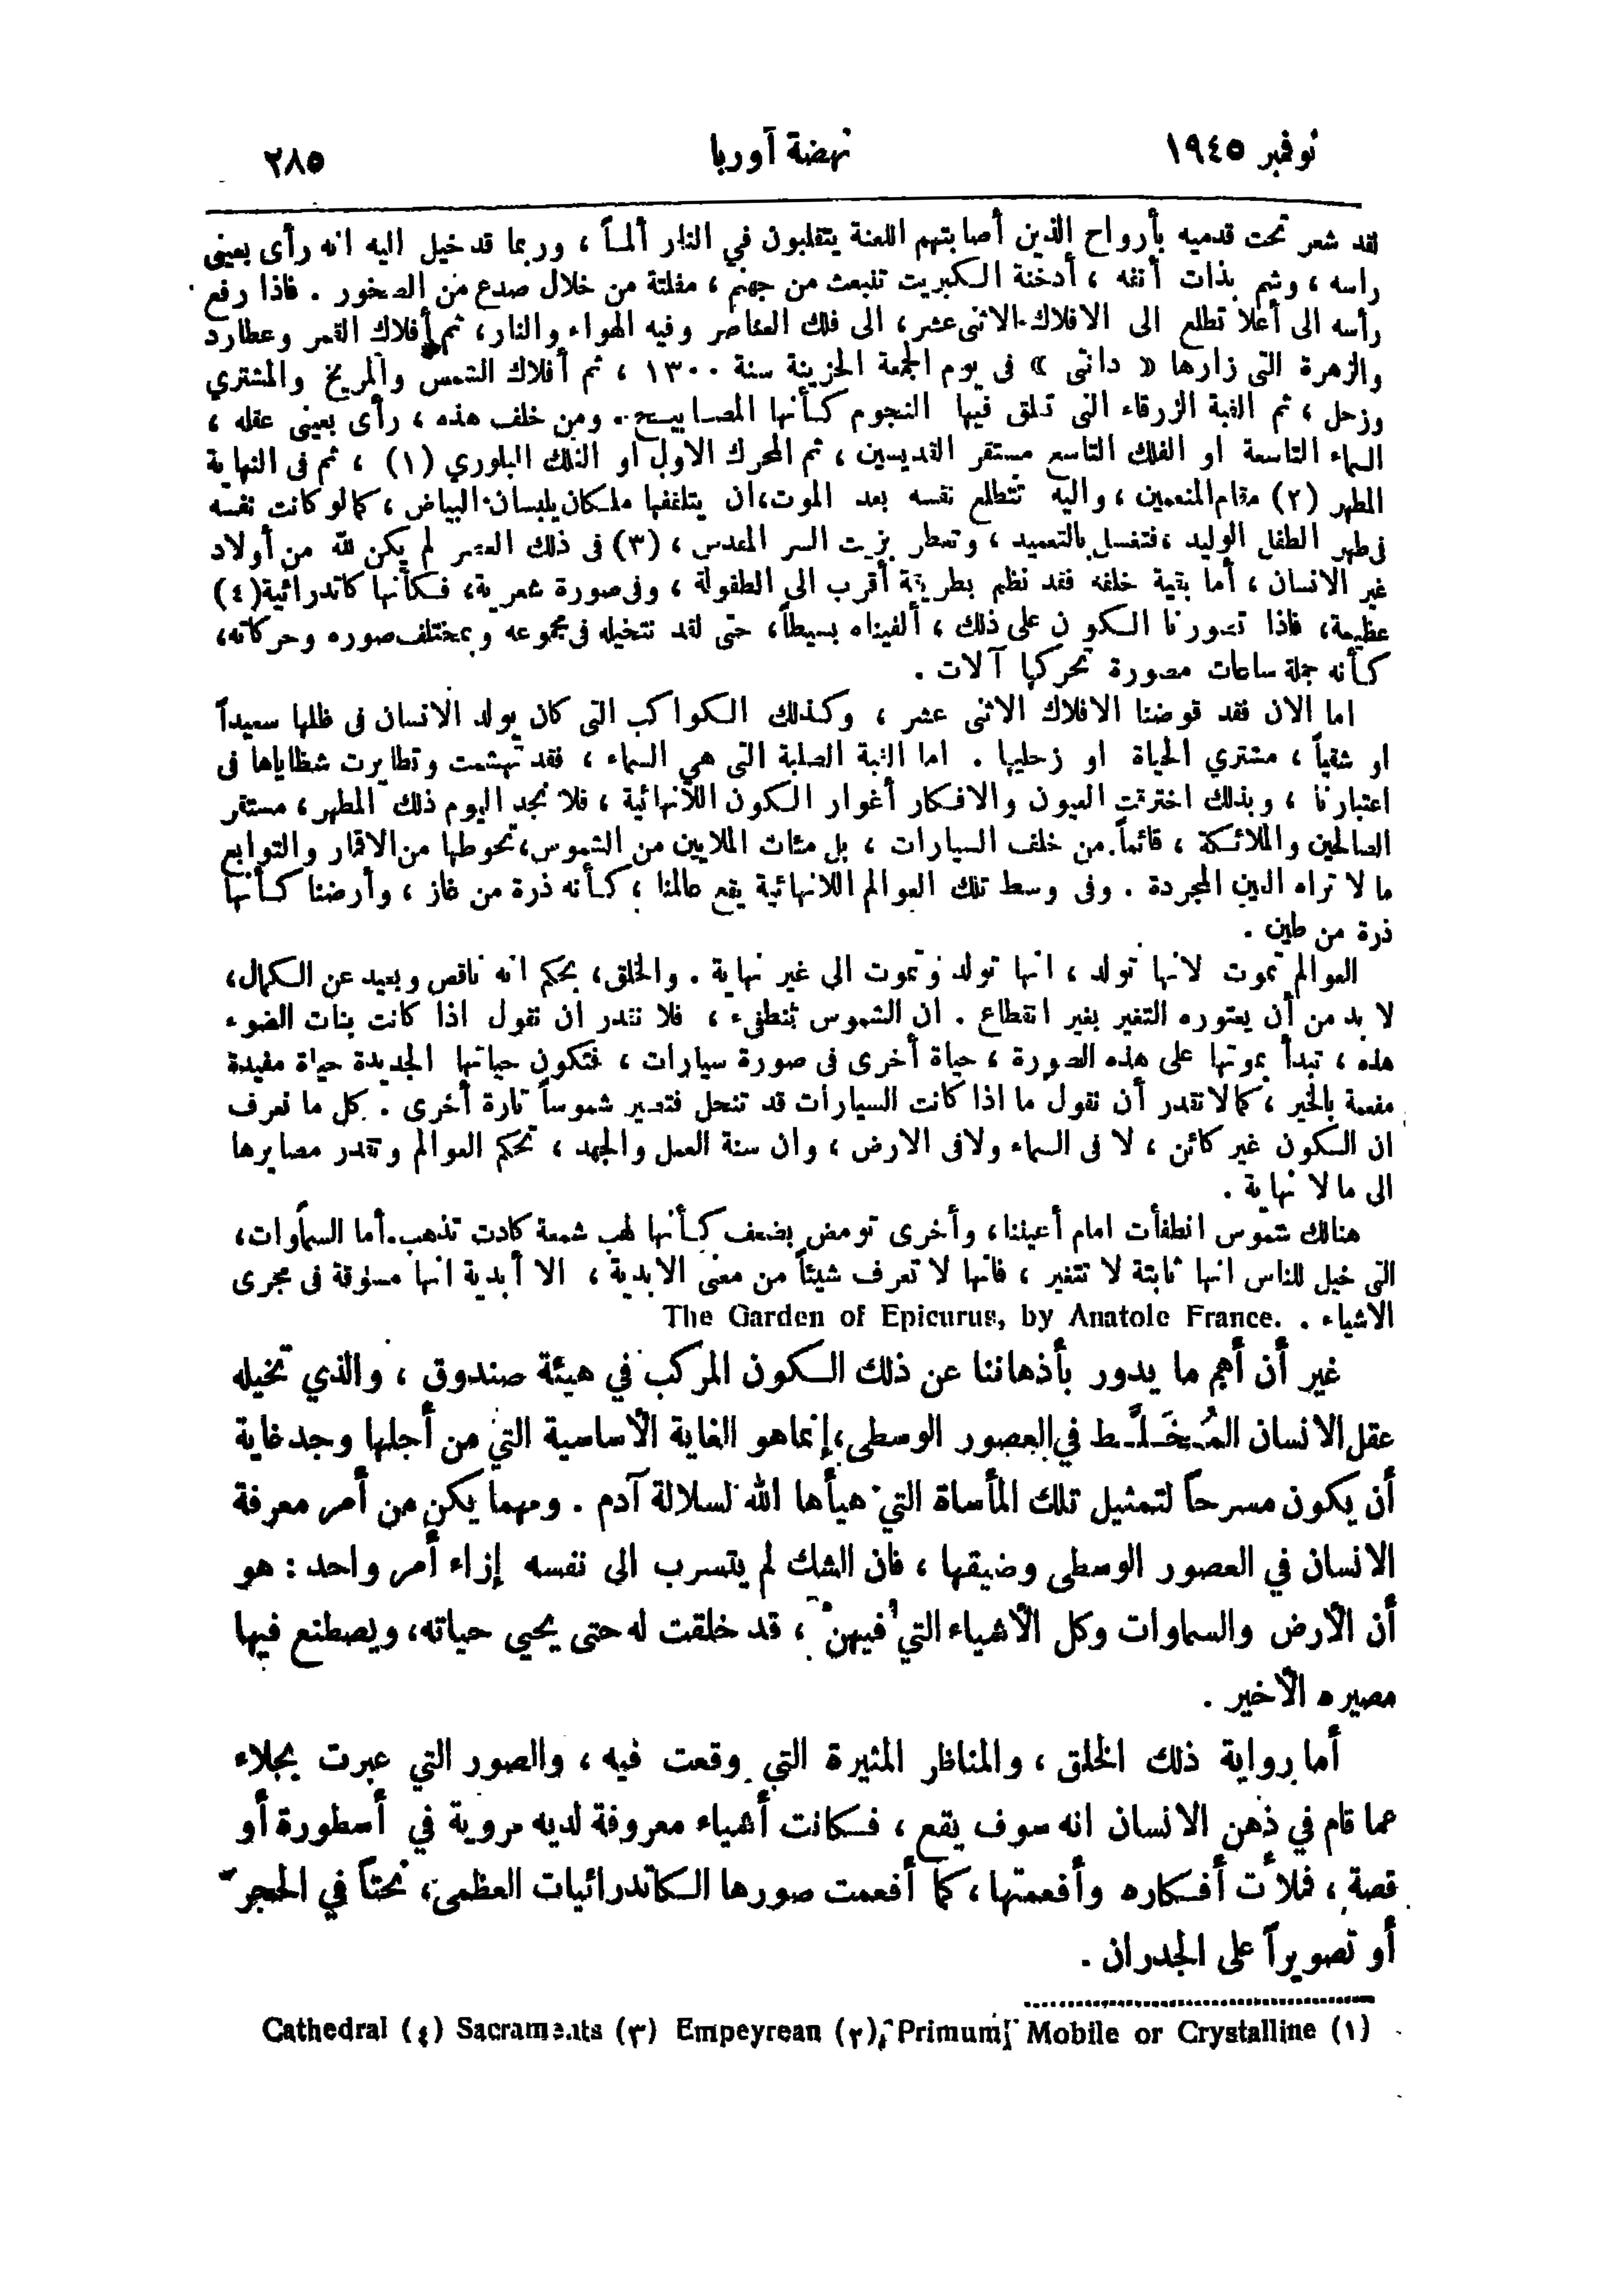 نوفمبر ١٩٤٥
نهضة آوربا
٢٨٥
لقد شعر تحت قدميه بأرواح الذين أصابتهم اللعنة يتقلبون في النار ألماً ، وربما قد خيل اليه انه رأى بعينى
راسه ، وشم بذات أنفه ، أدخنة الكبريت تنبعث من جهنم ، مفلتة من خلال صدع من الصخور . فاذا رفع
رأسه الى أعلا تطلع الى الافلاك الاثنى عشر، الى فلك العناصر وفيه الهواء والنار، ثم أفلاك القمر وعطارد
والزهرة التى زارها « دانتى » فى يوم الجمعة الحزينة سنة ١٣٠٠ ، ثم أفلاك الشمس والمريخ والمشتري
وزحل ، ثم القبة الزرقاء التى تعلق فيها النجوم كأنها المصابيح . ومن خلف هذه ، رأى بعينى عقله ،
السماء التاسعة او الفلك التاسع مستقر القديسين ، ثم المحرك الاول او الفلك البلوري (١) ، ثم فى النهاية
المطهر (٢) مقام المنعمين ، واليه تتطلع نفسه بعد الموت، ان يتلقفها ملكان يلبسان البياض ، كما لو كانت نفسه
فى طهر الطفل الوليد ، فتغسل بالتعميد ، وتعطر بزيت السر المقدس ، (٣) فى ذلك العصر لم يكن لله من أولاد
غير الانسان ، أما بقية خلقه فقد نظم بطريقة أقرب الى الطفولة ، وفى صورة شعرية، فكأنها كاتدرائية (٤)
عظيمة، فاذا تصورنا الكون على ذلك ، ألفيناه بسيطاً، حتى لقد نتخيله فى مجموعه وبمختلف صوره وحركاته،
كأنه جملة ساعات مصورة تحركها آلات .
اما الان فقد قوضنا الافلاك الاثنى عشر ، وكذلك الكواكب التى كان يولد الانسان فى ظلها سعيداً
او شقياً ، مشتري الحياة او زحليها . اما القبة الصلبة التى هي السماء ، فقد تهشمت وتطايرت شظاياها فى
اعتبارنا ، وبذلك اخترقت العيون والافكار أغوار الكون اللانهائية ، فلا نجد اليوم ذلك المطهر ، مستقر
الصالحين والملائكة ، قائماً من خلف السيارات ، بل مئات الملايين من الشموس، تحوطها من الاقمار والتوابع
ما لا تراه العين المجردة . وفى وسط تلك العوالم اللانهائية يقع عالمنا ، كأنه ذرة من غاز ، وأرضنا كأنها
ذرة من طين .
العوالم تموت لانها تولد ، انها تولد وتموت الى غير نهاية . والخلق، بحكم انه ناقص وبعيد عن الكمال،
لا بد من أن يعتوره التغير بغير انقطاع . ان الشموس تنطفىء ، فلا نقدر ان نقول اذا كانت بنات الضوء
هذه ، تبدأ بموتها على هذه الصورة ، حياة أخرى فى صورة سيارات ، فتكون حياتها الجديدة حياة مفيدة
مفعمة بالخير ، كما لا نقدر أن نقول ما اذا كانت السيارات قد تنحل فتصير شموساً تارة أخرى . كل ما نعرف
ان السكون غير كائن ، لا فى السماء ولا فى الارض ، وان سنة العمل والجهد ، تحكم العوالم وتقدر مصايرها
الى ما لا نهاية .
هنالك شموس انطفأت امام أعيننا ، وأخرى تومض بضعف كأنها لهب شمعة كادت تذهب. أما السماوات،
التى خيل للناس انها ثابتة لا تتغير ، فانها لا تعرف شيئاً من معنى الابدية ، الا أبدية انها مسوقة فى مجرى
الاشياء . The Garden of Epicurus, by Anatole France.
غير أن أهم ما يدور بأذهاننا عن ذلك الكون المركب في هيئة صندوق ، والذي تخيله
عقل الانسان المُخَلَّط في العصور الوسطى، إنما هو الغاية الأساسية التي من أجلها وجد غاية
أن يكون مسرحاً لتمثيل تلك المأساة التي هيأها الله لسلالة آدم . ومهما يكن من أمر معرفة
الانسان في العصور الوسطى وضيقها ، فان الشك لم يتسرب الى نفسه إزاء أمر واحد : هو
أن الأرض والسماوات وكل الأشياء التي فيهن ، قد خلقت له حتى يحيي حياته، ويصطنع فيها
مصيره الأخير .
أما رواية ذلك الخلق ، والمناظر المثيرة التي وقعت فيه ، والصور التي عبرت بجلاء
عما قام في ذهن الانسان انه سوف يقع ، فكانت أشياء معروفة لديه مروية في أسطورة أو
قصة ، فملأت أفكاره وأفعمتها ، كما أفعمت صورها الكاتدرائيات العظمى، نحتاً في الحجر
أو تصويراً على الجدران .
(١) Primum Mobile or Crystalline (٢) Empeyrean (٣) Sacraments (٤) Cathedral